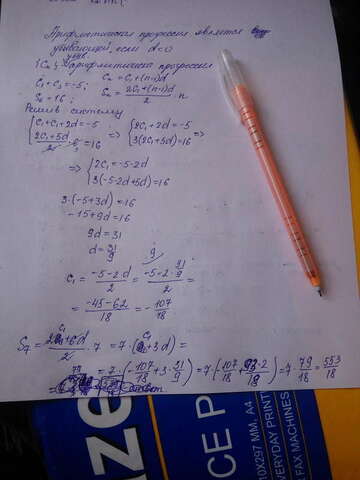 Арифметическая прогрессия является
убывающей, если d<0
{Cn} - арифметическа прогрессия
C₁ + C₃ = -5; Cn = C₁ + (n-1)d
S₆ = 16; Sn = 2C₁ + (n-1)d / 2 · n
Решив систему
{ C₁ + C₁ + 2d = -5 => { 2C₁ + 2d = -5 =>
{ 2C₁ + 5d / 2 · 6 = 16 { 3(2C₁ + 5d) = 16
=> { 2C₁ = -5 - 2d
{ 3(-5 - 2d + 5d) = 16
3·(-5 + 3d) = 16
-15 + 9d = 16
9d = 31
d = 31/9
C₁ = -5 - 2·d / 2 = -5 - 2·31/9 / 2 =
= -45 - 62 / 18 = -107/18
S₇ = 2C₁ + 6d / 2 · 7 = 7·(C₁ + 3d) =
= 7·(-107/18 + 3·31/9) = 7·(-107/18 + 93·2/18) = 7·79/18 = 553/18
ответ
aze
CE P
210X297 MM. A4
EVERYDAY PRINT
FAX MACHINES